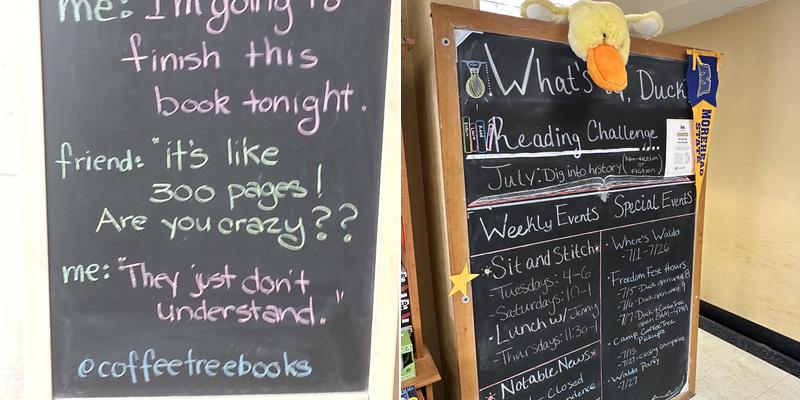 me: "I'm going to
finish this
book tonight.
friend: "it's like
300 pages!
Are you crazy??
me: "They just don't
understand."
@coffeetreebooks
What's Up, Duck
Reading Challenge
July: Dig into history (Non-fiction or fiction)
Weekly Events
Sit and Stitch
Tuesdays: 4-6
Saturdays: 10-1
Lunch w/ Jenny
Thursdays: 11:30-1
Notable News
Closed
Special Events
Where's Waldo
-7/1-7/26
Freedom Fest Hours
-7/5-Duck open until 8
-7/6-Duck open until 9
-7/7-Duck + CoffeeTree
open 8AM-4PM
Camp CoffeeTree
Pickups
-7/13
-7/27-closing campfire
Waldo Party
-7/27
MOREHEAD STATE